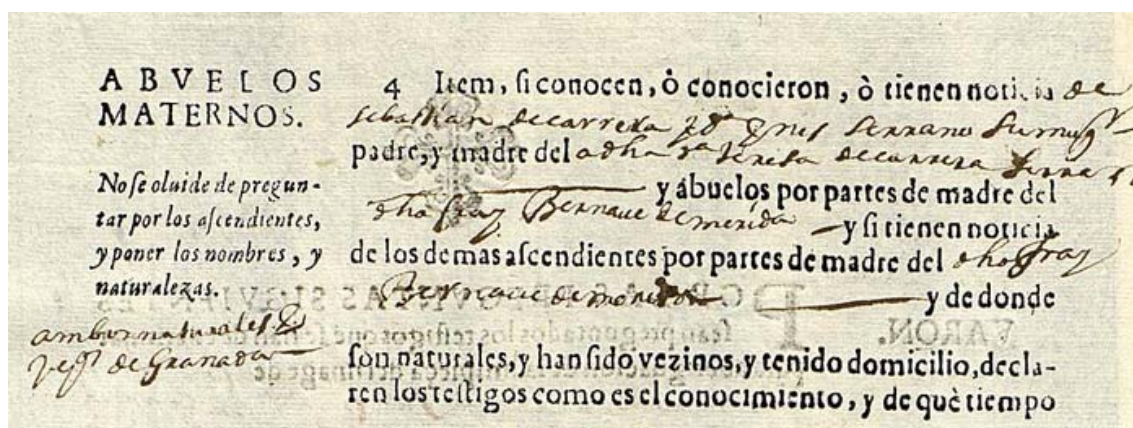 ABVELOS
MATERNOS.
No se oluide de pregun-
tar por los ascendientes,
y poner los nombres, y
naturalezas.
ambos naturales &
vezs de Granada
4 Item, si conocen, ò conocieron, ò tienen noticia de
sebastian de carrera y Da Ynes serrano su muger
padre, y madre del a dha Da teresa de carrera serra
y abuelos por partes de madre del
dho fray Bernaue de merida y si tienen noticia
de los demas ascendientes por partes de madre del dho fray
Bernaue de merida y de donde
son naturales, y han sido vezinos, y tenido domicilio, decla-
ren los testigos como es el conocimiento, y de què tiempo